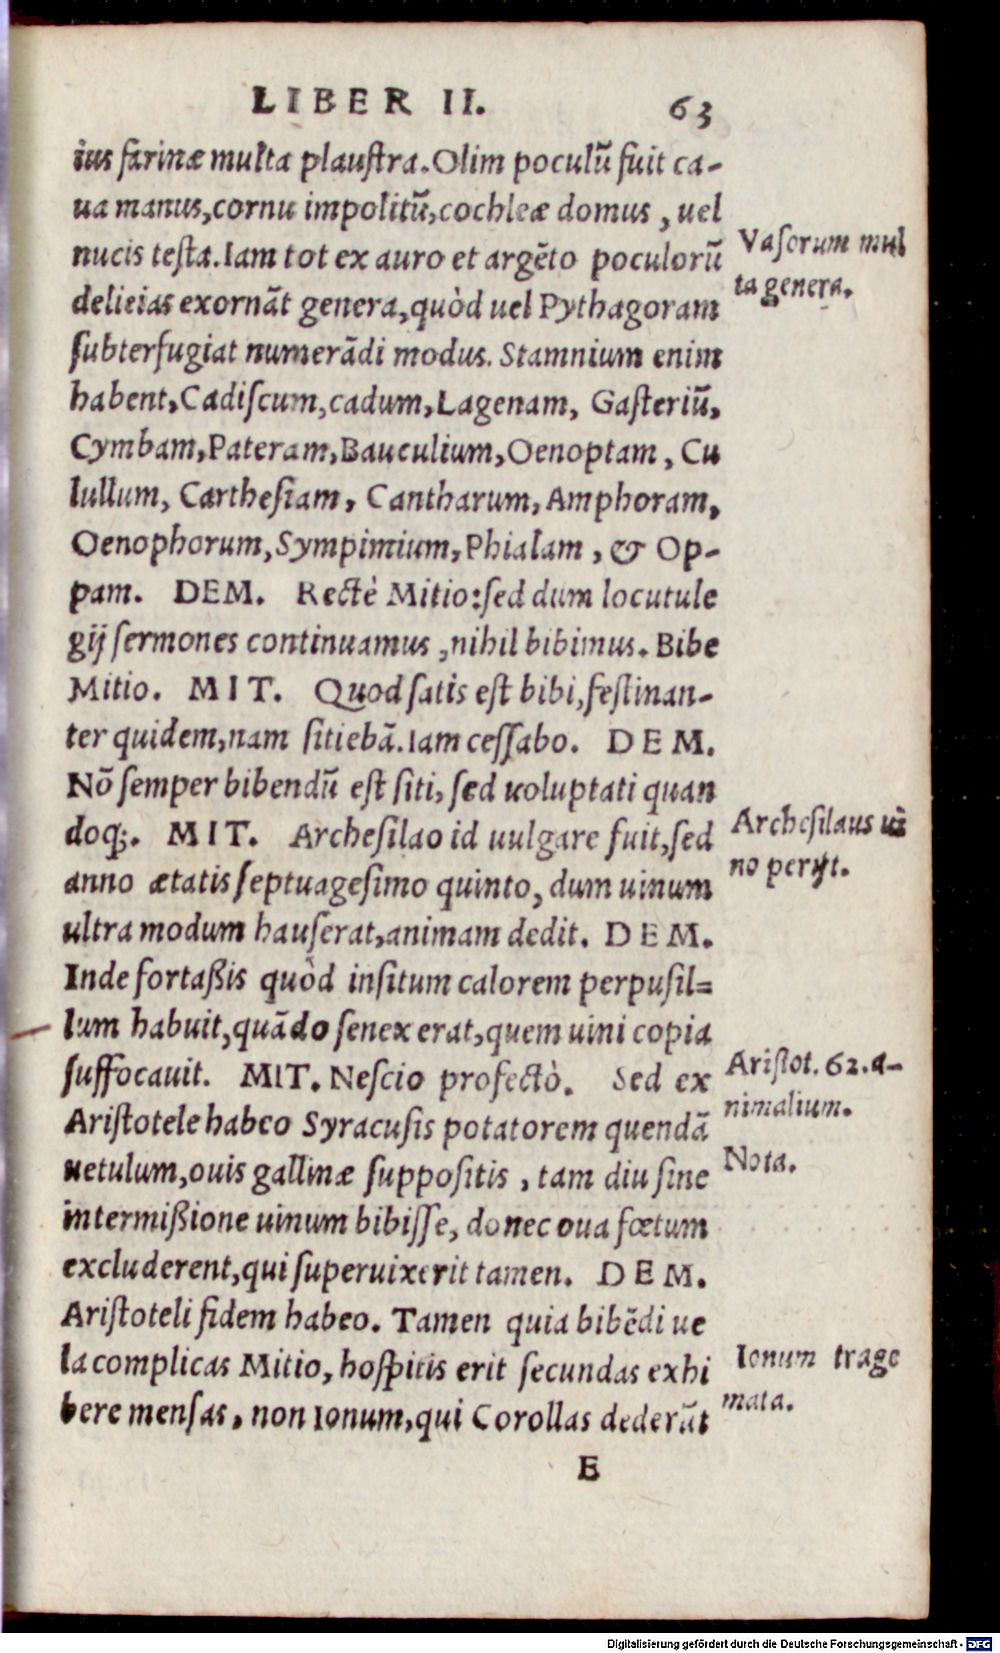 LIBER II. 63
ius farinæ multa plauſtra. Olim poculũ fuit ca-
ua manus, cornu impolitũ, cochleæ domus, uel
nucis teſta. Iam tot ex auro et argẽto poculorũ
Vaſorum mul
delicias exornãt genera, quòd uel Pythagoram
ta genera.
ſubterfugiat numerãdi modus. Stamnium enim
habent, Cadiſcum, cadum, Lagenam, Gaſteriũ,
Cymbam, Pateram, Bauculium, Oenoptam, Cu
lullum, Cartheſiam, Cantharum, Amphoram,
Oenophorum, Sympinium, Phialam, & Op-
pam. DEM. Rectè Mitio: ſed dum locutule
gij ſermones continuamus, nihil bibimus. Bibe
Mitio. MIT. Quod ſatis eſt bibi, feſtinan-
ter quidem, nam ſitiebã. Iam ceſſabo. DEM.
Nõ ſemper bibendũ eſt ſiti, ſed uoluptati quan
doq;. MIT. Archeſilao id uulgare fuit, ſed
Archeſilaus ui
anno ætatis ſeptuageſimo quinto, dum uinum
no perijt.
ultra modum hauſerat, animam dedit. DEM.
Inde fortaßis quòd inſitum calorem perpuſil=
lum habuit, quãdo ſenex erat, quem uini copia
ſuffocauit. MIT. Neſcio profectò. Sed ex
Ariſtot. 62. a-
Ariſtotele habeo Syracuſis potatorem quendã
nimalium.
uetulum, ouis gallinæ ſuppoſitis, tam diu ſine
Nota.
intermißione uinum bibiſſe, donec oua fœtum
excluderent, qui ſuperuixerit tamen. DEM.
Ariſtoteli fidem habeo. Tamen quia bibẽdi ue
la complicas Mitio, hoſpitis erit ſecundas exhi
Ionum trage
bere menſas, non Ionum, qui Corollas dederũt
mata.
E
Digitalisierung gefördert durch die Deutsche Forschungsgemeinschaft - DFG